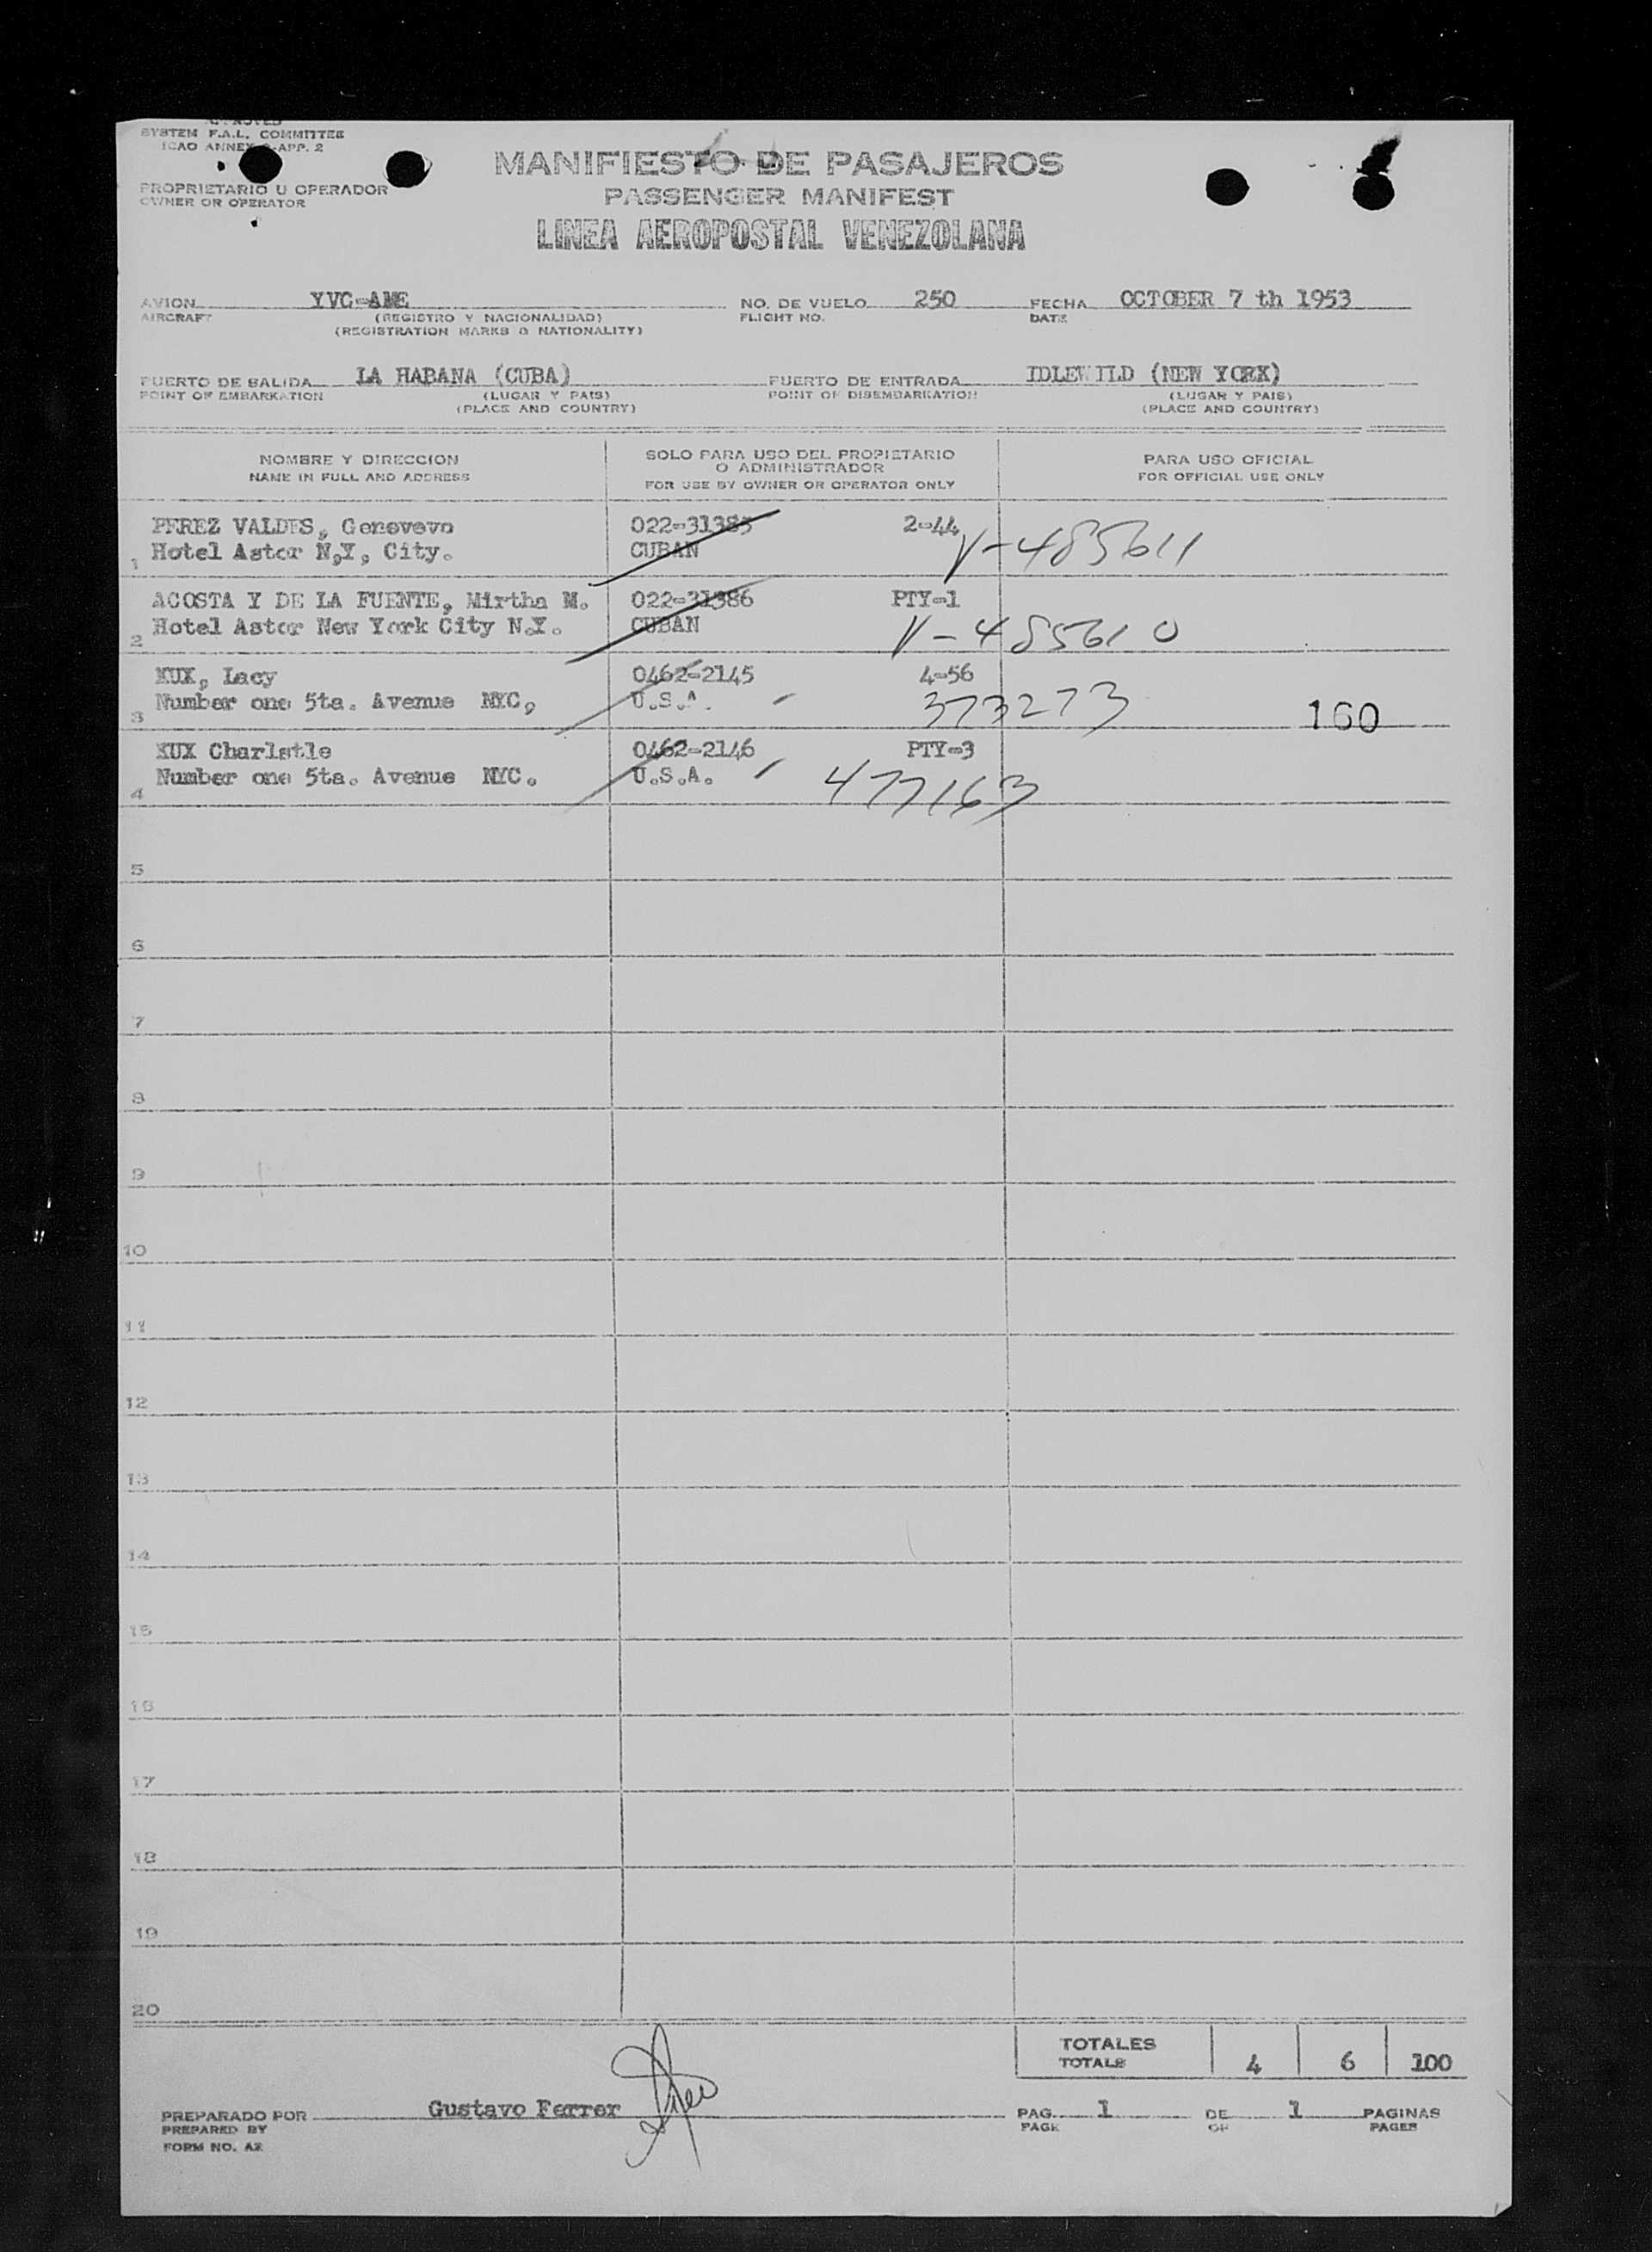 SYSTEM F.A.L. COMMITTEE
ICAO ANNEX APP. 2
MANIFIESTO DE PASAJEROS
PROPRIETARIO U OPERADOR
PASSENGER MANIFEST
OWNER OR OPERATOR
LINEA AEROPOSTAL VENEZOLANA
AVION YVC-AME NO. DE VUELO 250 FECHA OCTOBER 7 th 1953
AIRCRAFT (REGISTRO Y NACIONALIDAD) FLIGHT NO. DATE
(REGISTRATION MARKS & NATIONALITY)
PUERTO DE SALIDA LA HABANA (CUBA) PUERTO DE ENTRADA IDLEWILD (NEW YORK)
POINT OF EMBARKATION (LUGAR Y PAIS) POINT OF DISEMBARKATION (LUGAR Y PAIS)
(PLACE AND COUNTRY) (PLACE AND COUNTRY)
NOMBRE Y DIRECCION SOLO PARA USO DEL PROPIETARIO PARA USO OFICIAL
O ADMINISTRADOR
NAME IN FULL AND ADDRESS FOR USE BY OWNER OR OPERATOR ONLY FOR OFFICIAL USE ONLY
PEREZ VALDES, Genovevo 022-31385 2-44 V-485611
1 Hotel Astor N,Y, City. CUBAN
ACOSTA Y DE LA FUENTE, Mirtha M. 022-31386 PTY-1
2 Hotel Astor New York City N.Y. CUBAN V-485610
KUX, Lacy 0462-2145 4-56
3 Number one 5ta. Avenue NYC, U.S.A. 373273 160
KUX Charlstle 0462-2146 PTY-3
4 Number one 5ta. Avenue NYC. U.S.A. 477163
5
6
7
8
9
10
11
12
13
14
15
16
17
18
19
20
TOTALES
TOTALS 4 6 100
PREPARADO POR Gustavo Ferrer PAG. 1 DE 1 PAGINAS
PREPARED BY PAGE OF PAGES
FORM NO. A2